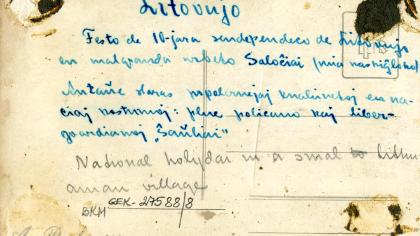 Litovujo
Festo de 10-jara sendependeco de Litovujo
en malgranda urbeto Saločiai (mia naskiĝloko)
Antaŭe staras popolarnejaj knabinetoj en na-
ciaj kostumoj: plue policano kaj liber-
gvardianoj „Šauliai"
National holydai in a smal to Lithu
anian village
BKM GEK-27588/8